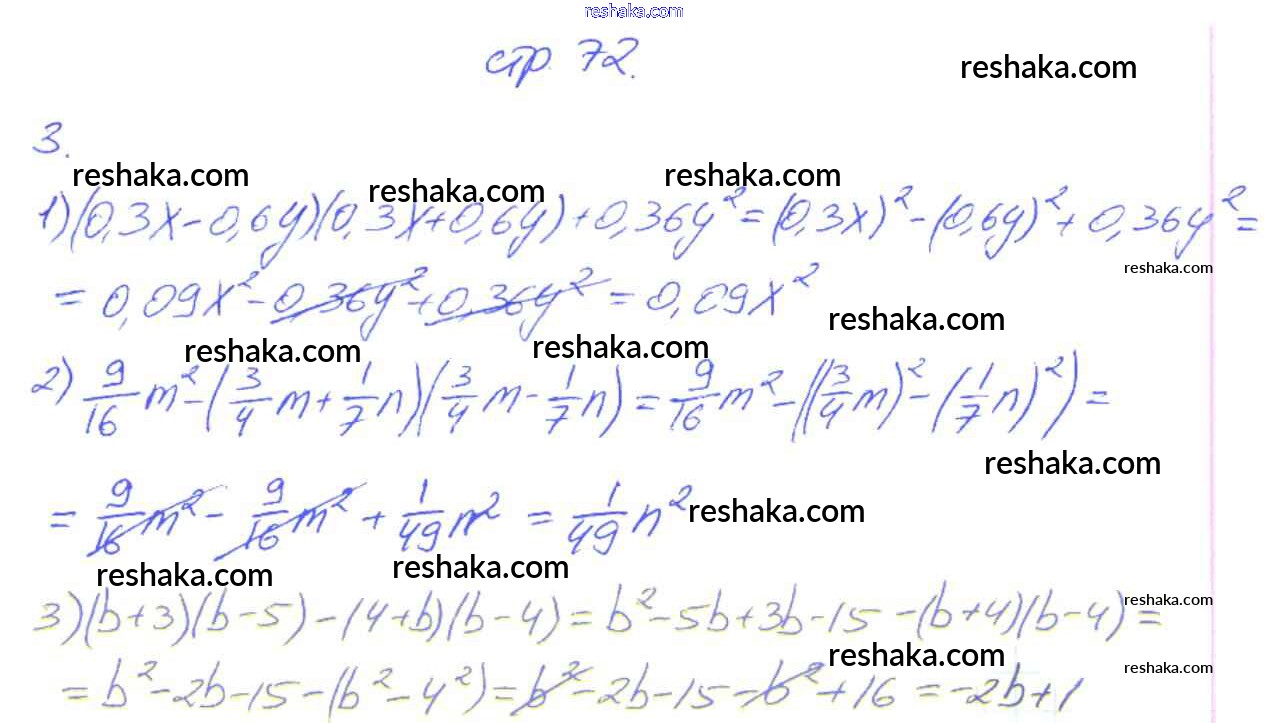 reshaka.com
стр. 72.
reshaka.com
3.
reshaka.com
reshaka.com
reshaka.com
1) (0,3x - 0,6y)(0,3x + 0,6y) + 0,36y² = (0,3x)² - (0,6y)² + 0,36y² =
reshaka.com
= 0,09x² - 0,36y² + 0,36y² = 0,09x²
reshaka.com
reshaka.com
reshaka.com
2) 9/16 m² - (3/4 m + 1/7 n)(3/4 m - 1/7 n) = 9/16 m² - ((3/4 m)² - (1/7 n)²) =
reshaka.com
= 9/16 m² - 9/16 m² + 1/49 n² = 1/49 n²
reshaka.com
reshaka.com
reshaka.com
3) (b+3)(b-5) - (4+b)(b-4) = b² - 5b + 3b - 15 - (b+4)(b-4) =
reshaka.com
reshaka.com
reshaka.com
= b² - 2b - 15 - (b² - 4²) = b² - 2b - 15 - b² + 16 = -2b + 1